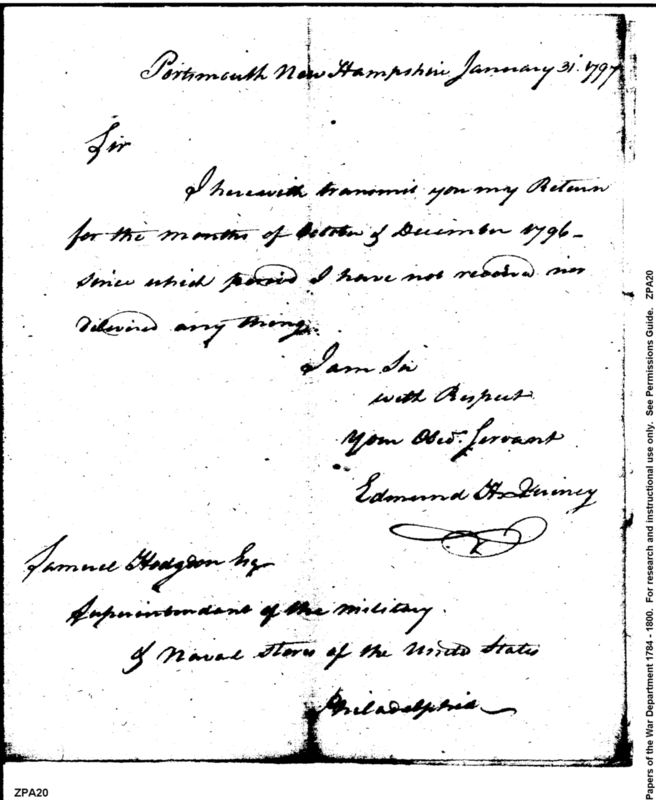 Portsmouth New Hampshire January 31. 1797
Sir
I herewith transmit you my Return
for the months of October & December 1796 -
since which period I have not received nor
delivered any thing.
I am Sir
with Respect
Your Obed. Servant
Edmund H. Quincy
Samuel Hodgdon Esq
Superintendant of the military
& Naval stores of the United States
Philadelphia
ZPA20
Papers of the War Department 1784 - 1800. For research and instructional use only. See Permissions Guide. ZPA20